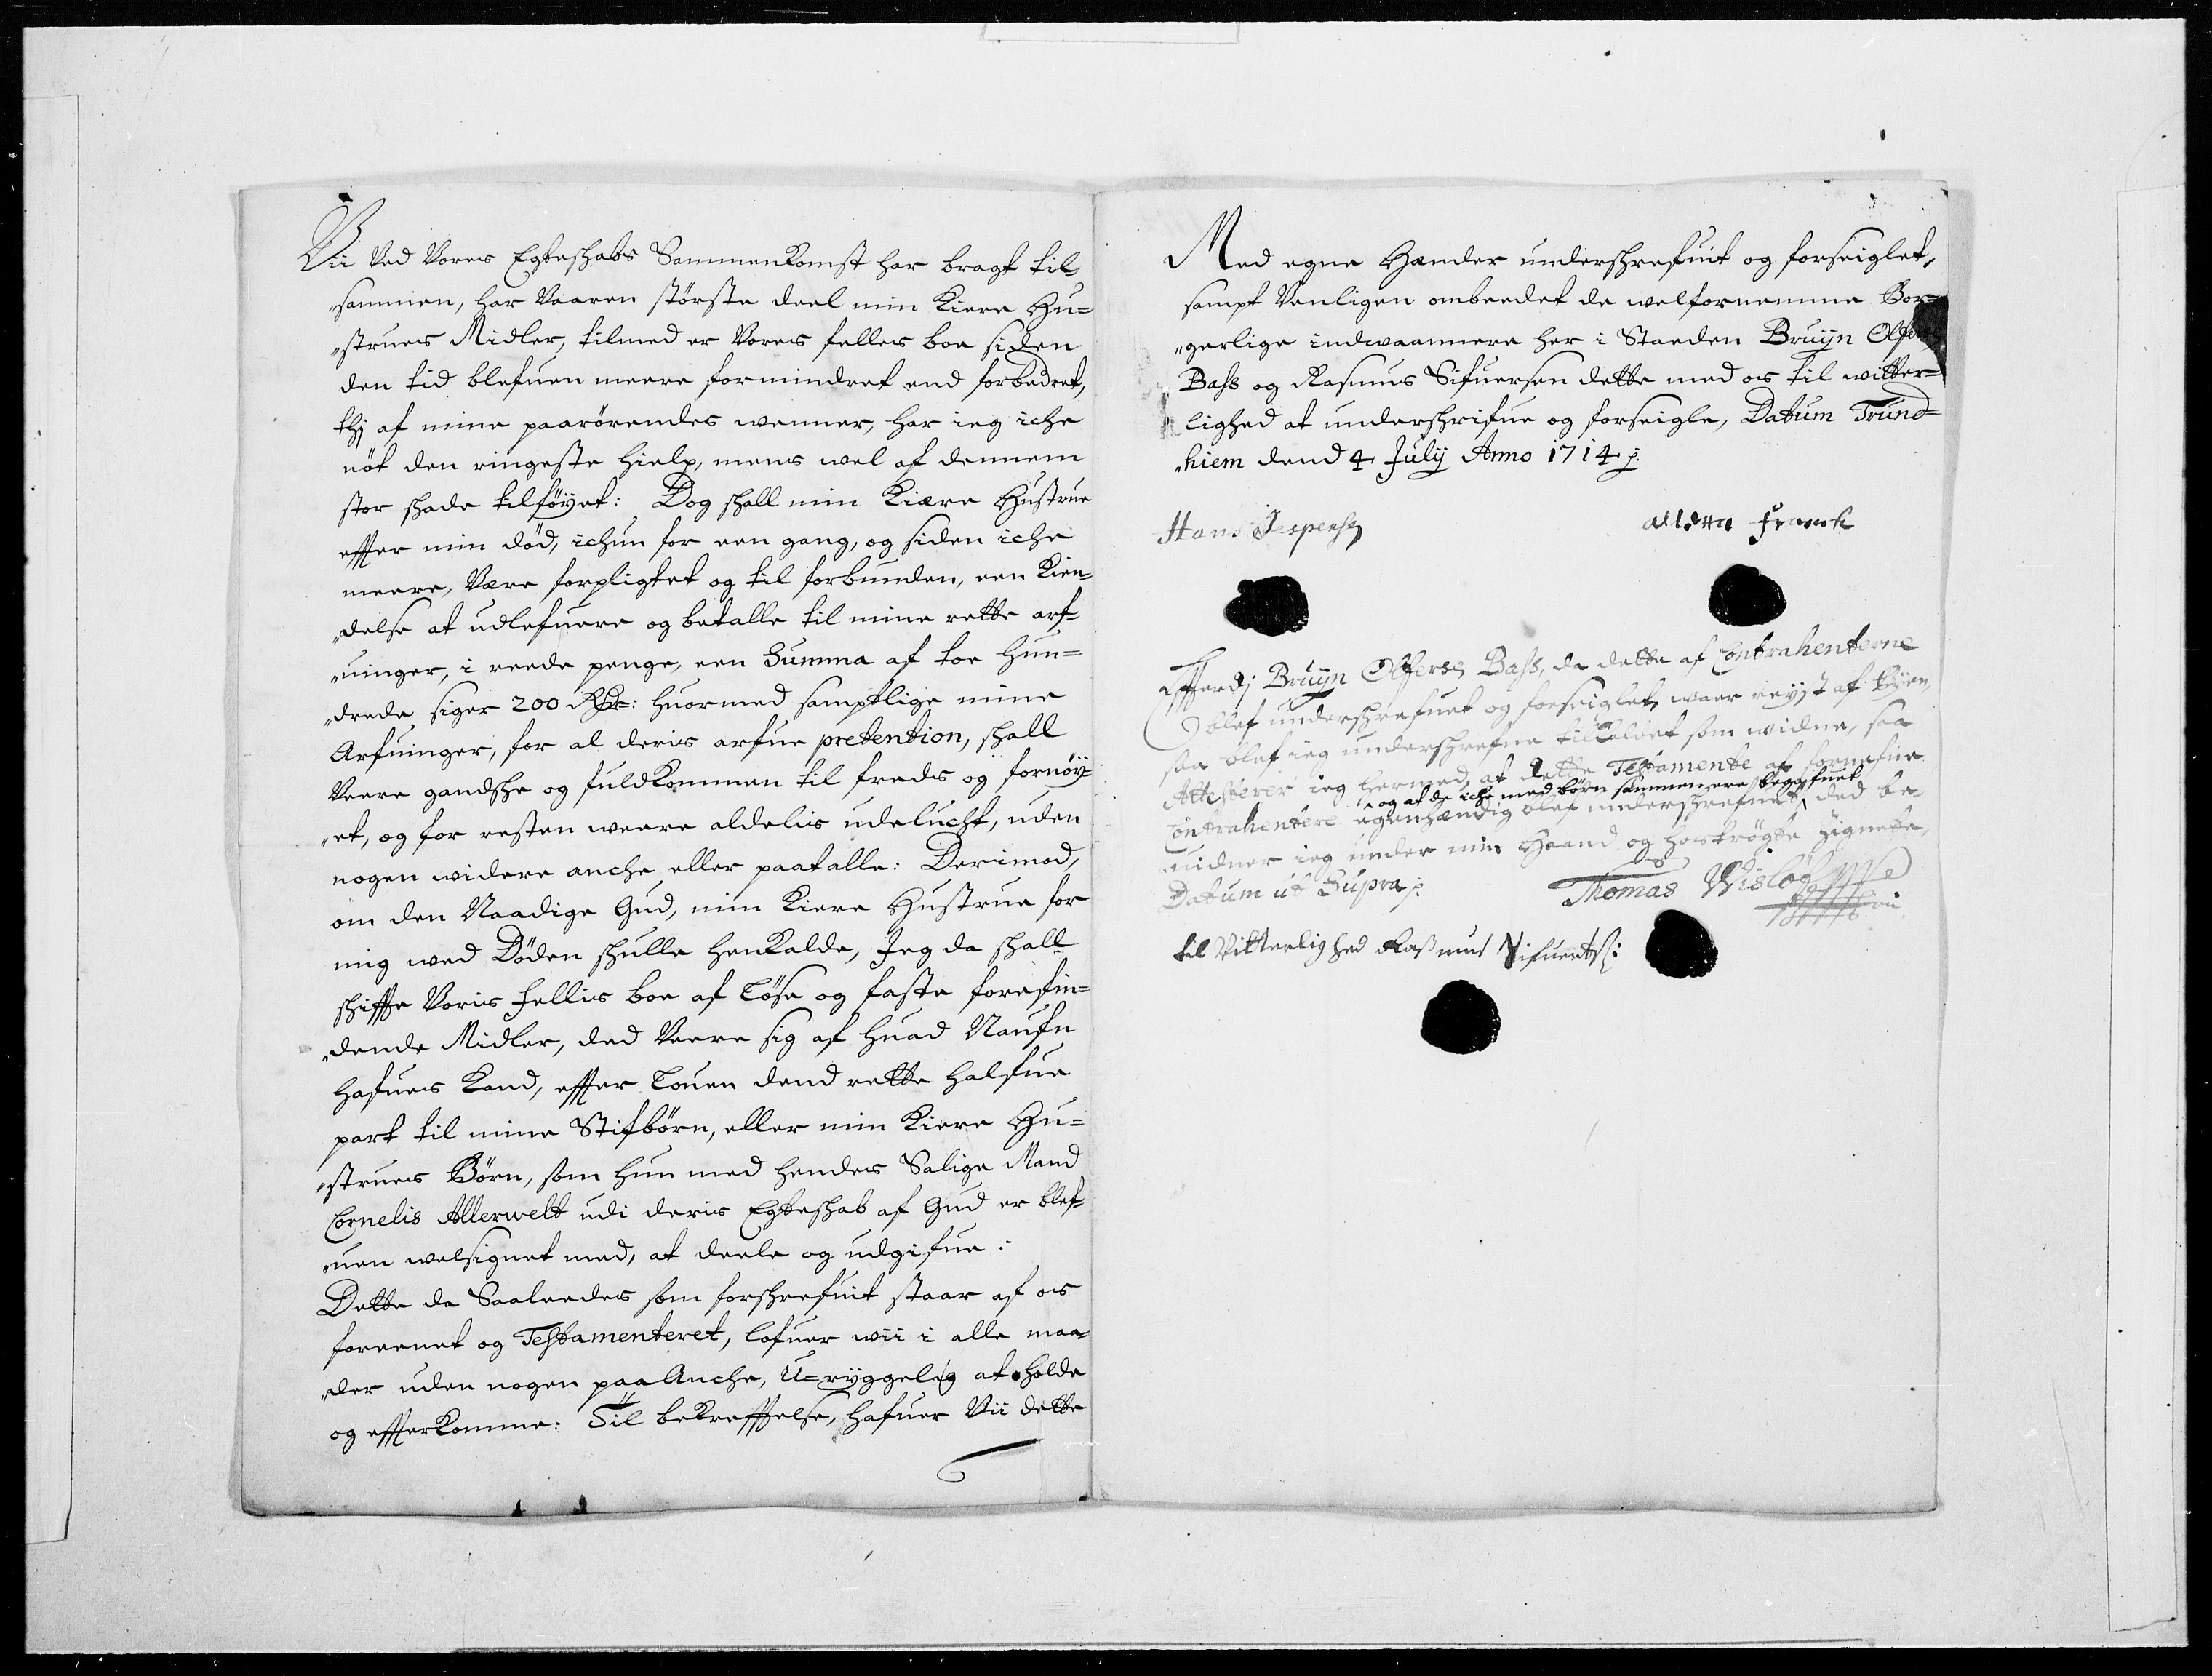 Vii Ved Vores Egteshabs Sammenkomst har bragt til
„sammen, har Vaaren störste deel min Kiere Hu=
„strues Midler, tilmed er Vores felles boe siden
den tid blefuen meere formindret end forbedret,
thj af mine paarörendes wenner, har ieg iche
nöt den ringeste hielp, mens wel af dennem
stor shade tilföyet: Dog shall min Kiære Hustrue
effter min död, ichun for een gang, og siden iche
meere, Være forpligtet og til forbunden, een Kien=
„delse at udlefuere og betalle til mine rette arf=
„uinger, i reede penge, een Summa af toe hun=
„drede siger 200 Rdr: huormed samptlige mine
Arfuinger, for al deris arfue pretention, shall
Veere gandshe og fuldkommen til freds og fornöy=
„et, og for resten weere aldelis udelucht, uden
nogen widere anche eller paatalle: Derimod,
om den Naadige Gud, min Kiere Hustrue for
mig wed Döden shulle henkalde, Jeg da shall
shiffte Voris fellis boe af Löse og faste forefin=
„dende Midler, ded Veere sig af huad Naufn
hafues Kand, effter Louen dend rette halfue
part til mine Stifbörn, eller min Kiere Hu=
„strues Börn, som hun med hendes Salige Mand
Cornelis Allerwelt udi deris Egteshab af Gud er blef=
„uen welsignet med, at deele og udgifue:
Dette da Saaleedes som forshrefuit staar af os
foreenet og Testamenteret, lofuer wii i alle maa=
„der uden nogen paaAnche, U=ryggelig at holde
og effterkomme: Til bekrefftelse, hafuer Vii dette
Med egne Hænder undershrefuit og forseiglet,
sampt Venligen ombeedet de welfornemme Bor=
„gerlige indwaannere her i Staeden Bruijn Olfersen
Bass og Rasmus Sifuersen dette med os til witter=
lighed at undershrifue og forseigle, Datum Trund=
„hiem dend 4 Julij Anno 1714 p
Hans Jespersen
alletta Franck
Effterdj Bruijn Olfersen Bass, da dette af Contrahenterne
blef undershrefuet og forseiglet, waar reyst af byen,
saa blef ieg undershrefne tilkaldet som widne, saa
Attesterer ieg hermed, at dette Testamente af fornefne
og at de iche med börn sammen ere begafuet
Contrahentere egenhændig blef undershrefuet, ded be=
uidner ieg under min Haand og hoströgte Zignete,
Datum ut Supra p
Thomas Wislöff
til Vitterlighed Rasmus Sifuerts: